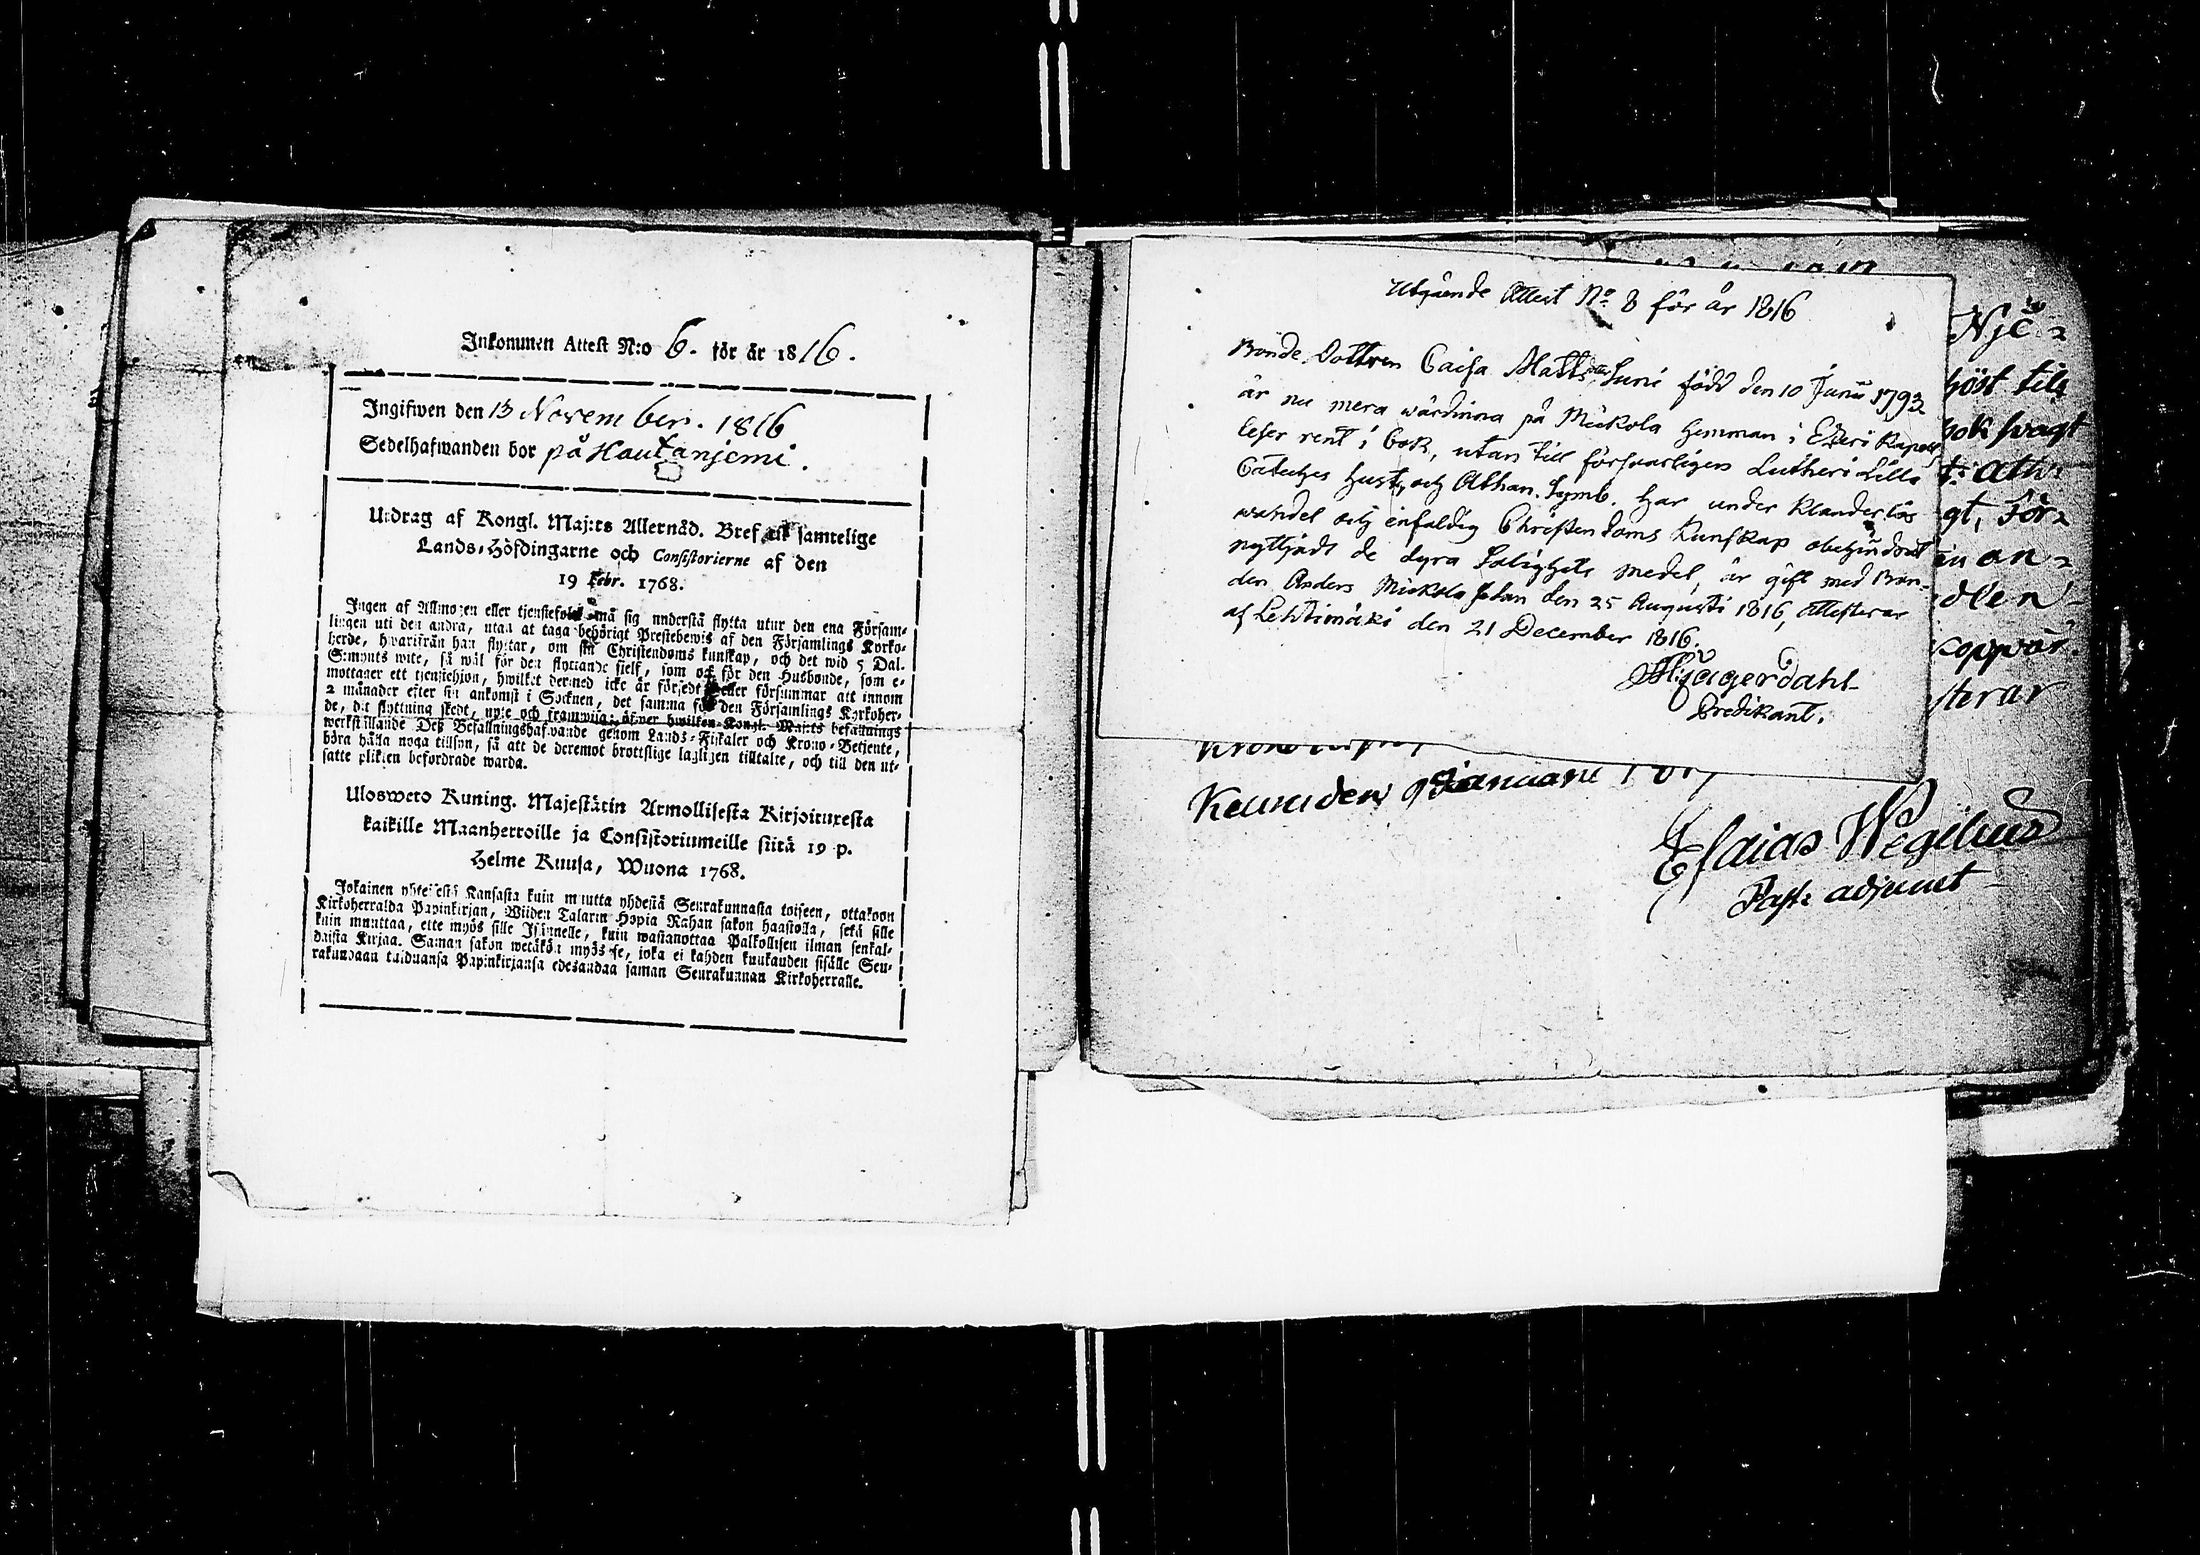 Inkommen Attest N:o 6. för år 1816.
Ingifwen den 13 November. 1816
Sedelhafwanden bor på Hautanjemi.
Utdrag af Kongl. Maj:ts Allernåd. Bref till samtelige
Lands-Höfdingarne och Consistorierne af den
19 Febr. 1768.
Ingen af Allmogen eller tjenstefolk må sig understå flytta utur den ena Försam-
lingen uti den andra, utan at taga behörigt Prestebewis af den Församlings Kyrko-
herde, hwarifrån han flyttar, om sin Christendoms kunskap, och det wid 5 Dal.
S:mynts wite, så wäl för den flyttande sjelf, som ock för den Husbonde, som e-
mottager ett tjenstehion, hwilket dermed icke är försedt eller försummar att innom
2 månader efter sin ankomst i Socknen, det samma för den Församlings Kyrkoher-
de, dit flyttning skedt, upte och framwisa; öfwer hwilken Kongl. Maj:ts befallnings
werkställande Deß Befallningshafwande genom Lands-Fiskaler och Krono-Betjente,
böra hålla noga tillsyn, så att de deremot brottslige lagligen tilltalte, och till den ut-
satte plikten befordrade warda.
Ulosweto Kuning. Majestätin Armollisesta Kirjoituxesta
kaikille Maanherroille ja Consistoriumeille siitä 19 p.
Helme Kuusa, Wuona 1768.
Jokainen yhteisestä Kansasta kuin muutta yhdestä Seurakunnasta toiseen, ottakoon
Kirkoherralda Papinkirjan, Wiiden Talarin Hopia Rahan sakon haastolla, sekä sille
kuin muuttaa, ette myös sille Isännelle, kuin wastanottaa Palkollisen ilman senkal-
daista Kirjaa. Saman sakon wetäkön myös se, joka ei kahden kuukauden sisälle Seu-
rakundaan tulduansa Papinkirjansa edesandaa saman Seurakunnan Kirkoherralle.
Utgående Attest No 8 för år 1816
Bonde Dottren Caisa Mattsdotter Suni född den 10 Junii 1793
är nu mera wärdinna på Mickola hemman i Etseri Kapell
leser rent i bok, utan till förswarligen Lutheri Lilla
Cateches Hust. och Athan. Symb. Har under klanderlös
wandel och enfaldig Christendoms Kunskap obehindrat
nyttjadt de dyra Salighets medel, är gift med Bon-
den Anders Mickola sedan den 25 Augusti 1816, attesterar
af Lehtimäki den 21 December 1816.
Hjägerdahl
Predikant.
höst till
bok svagt
gt, För-
an-
sterar
Keuru den 9 Januarii 1817
Esaias Wegelius
Past: adjunct